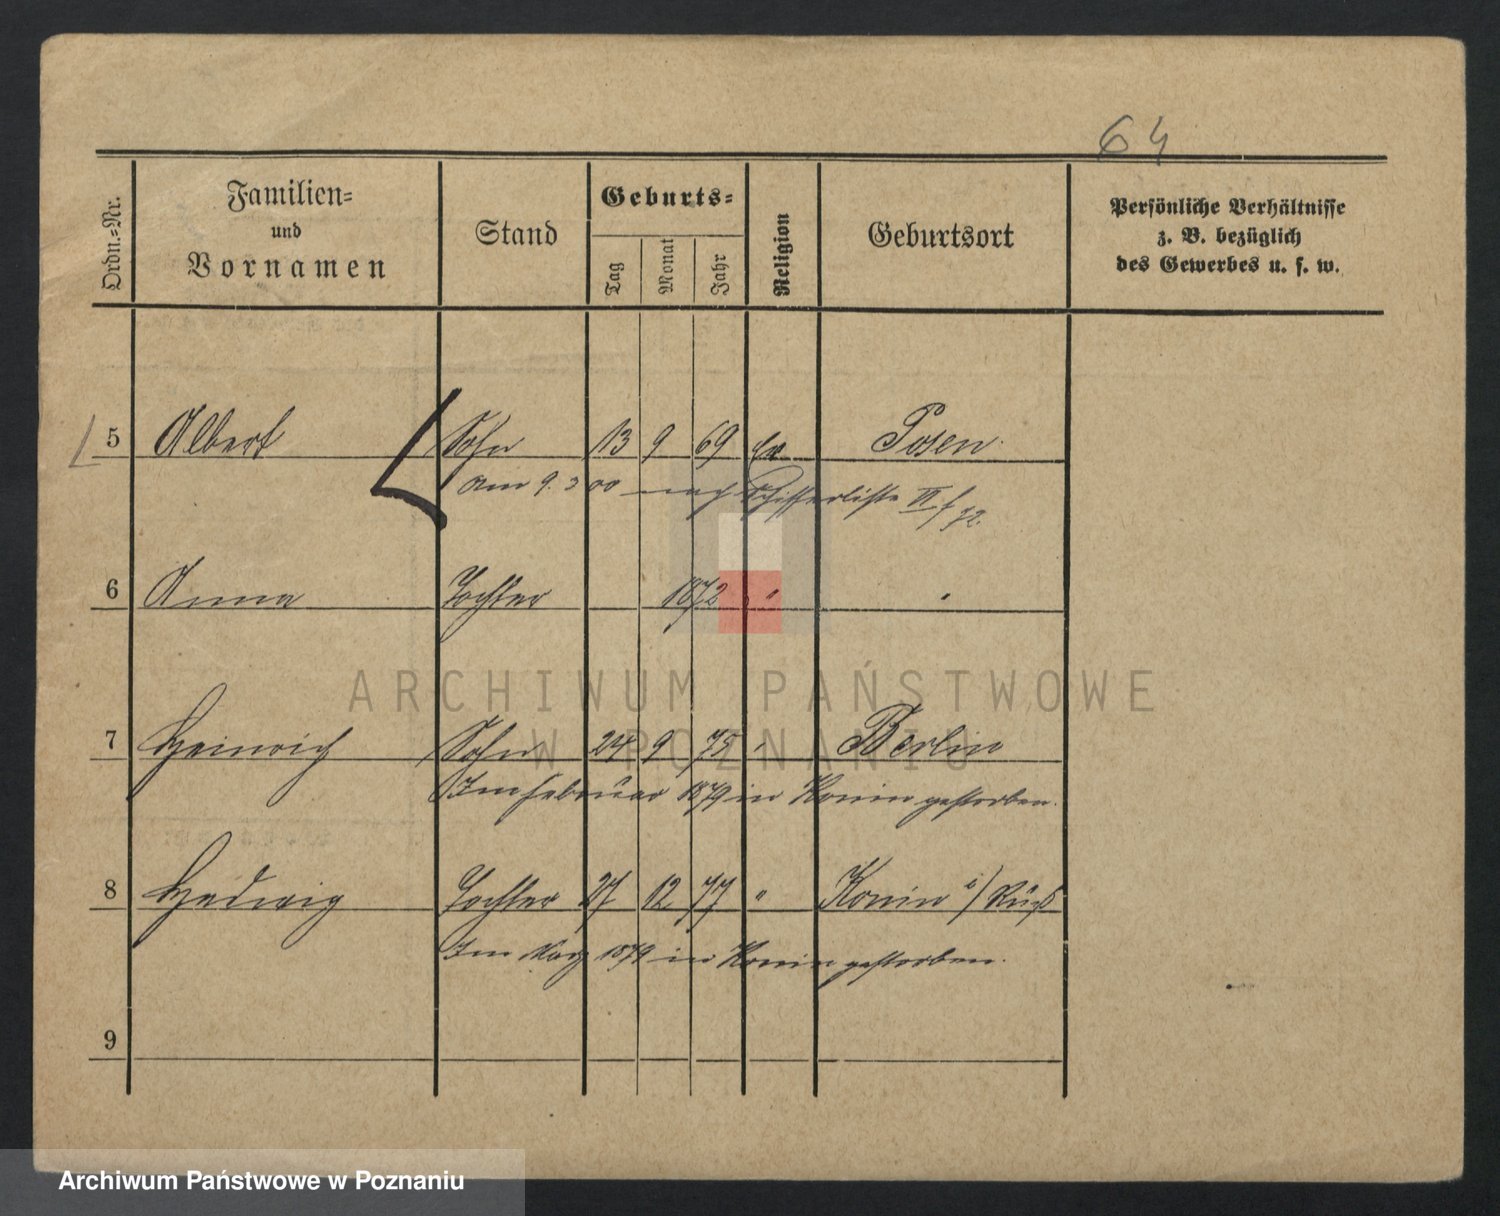 64
Ordn.-Nr.
Familien-
und
Vornamen
Stand
Geburts-
Tag
Monat
Jahr
Religion
Geburtsort
Persönliche Verhältnisse
z. B. bezüglich
des Gewerbes u. s. w.
5 Albert Sohn 13 9 69 Ev Posen.
am 9. 3 00 nach Schifferliste VI f 72.
6 Anna Tochter 1872 " "
7 Heinrich Sohn 24 9 75 " Berlin
Im Februar 1879 in Konin gestorben.
8 Hedwig Tochter 27 12 77 " Konin i/ Rußl
Im März 1879 in Konin gestorben.
9
ARCHIWUM PAŃSTWOWE
W POZNANIU
Archiwum Państwowe w Poznaniu